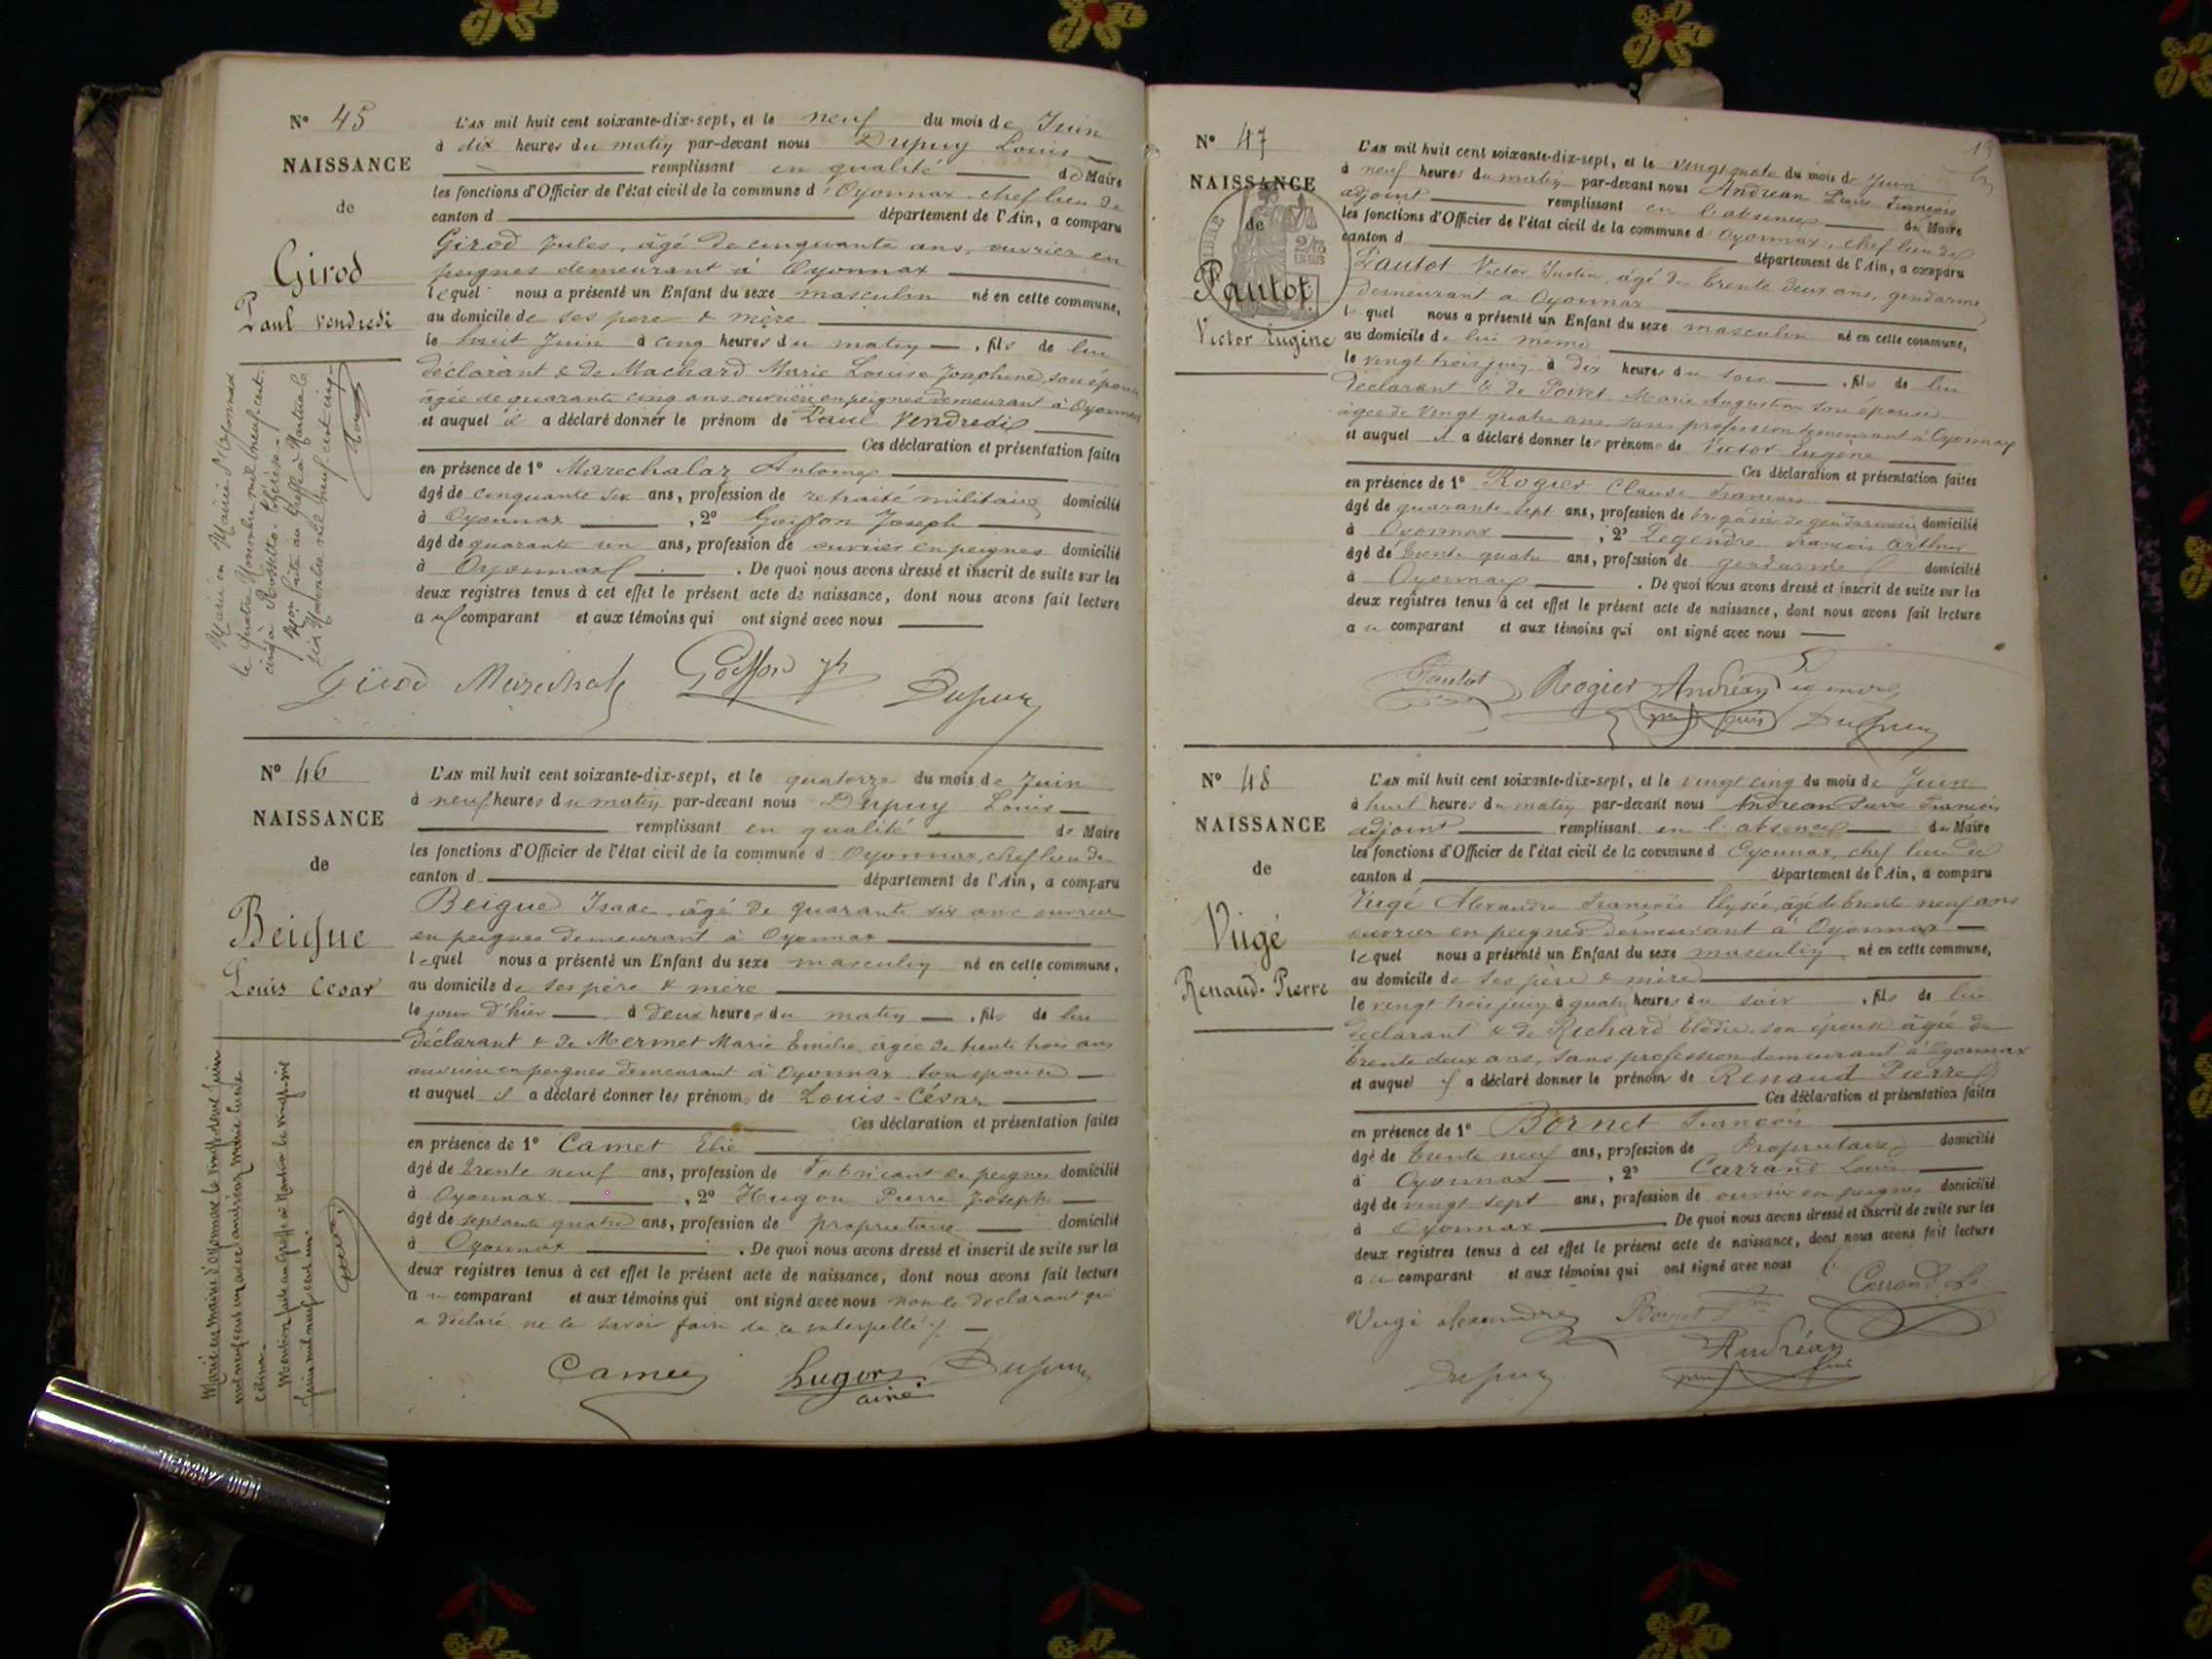 N° 45
NAISSANCE
de
Girod
Paul Vendredi
Marié en Mairie d'Oyonnax
le quatre Novembre mil neuf cent
cinq à Rossetto Thérèse
Mon faite au Greffe à Nantua le
six Novembre mil neuf cent cinq
L'AN mil huit cent soixante-dix-sept, et le neuf du mois de Juin
à dix heures du matin par-devant nous Dupuy Louis
remplissant en qualité de Maire
les fonctions d'Officier de l'état civil de la commune d'Oyonnax, chef lieu de
canton d département de l'Ain, a comparu
Girod Jules, âgé de cinquante ans, ouvrier en
peignes demeurant à Oyonnax
lequel nous a présenté un Enfant du sexe masculin né en cette commune,
au domicile de ses père & mère
le huit Juin à cinq heures du matin, fils de lui
déclarant & de Machard Marie Louise Josephine, son épouse
âgée de quarante cinq ans ouvrière en peignes demeurant à Oyonnax
et auquel il a déclaré donner le prénom de Paul Vendredi
Ces déclaration et présentation faites
en présence de 1° Marechalaz Antoine
âgé de cinquante six ans, profession de retraité militaire domicilié
à Oyonnax, 2° Goiffon Joseph
âgé de quarante un ans, profession de ouvrier en peignes domicilié
à Oyonnax. De quoi nous avons dressé et inscrit de suite sur les
deux registres tenus à cet effet le présent acte de naissance, dont nous avons fait lecture
au comparant et aux témoins qui ont signé avec nous
Girod Marechalaz Goiffon Jh Dupuy
N° 46
NAISSANCE
de
Beigue
Louis Cesar
Marié en mairie d'oyonnax le vingt-deux Juin
mil neuf cent un avec Marie Lucie
Mention faite au Greffe à Nantua le vingt-six
Juin mil neuf cent un.
L'AN mil huit cent soixante-dix-sept, et le quatorze du mois de Juin
à neuf heures du matin par-devant nous Dupuy Louis
remplissant en qualité de Maire
les fonctions d'Officier de l'état civil de la commune d Oyonnax, chef lieu de
canton d département de l'Ain, a comparu
Beigue Isaac, âgé de quarante six ans ouvrier
en peignes demeurant à Oyonnax
lequel nous a présenté un Enfant du sexe masculin né en cette commune,
au domicile de ses père & mère
le jour d'hier à deux heures du matin, fils de lui
déclarant & de Mermet Marie Emilie, agée de trente trois ans
ouvrière en peignes demeurant à Oyonnax son épouse
et auquel il a déclaré donner les prénoms de Louis-César
Ces déclaration et présentation faites
en présence de 1° Camet Elie
âgé de trente neuf ans, profession de Fabricant de peignes domicilié
à Oyonnax, 2° Hugon Pierre Joseph
âgé de septante quatre ans, profession de propriétaire domicilié
à Oyonnax. De quoi nous avons dressé et inscrit de suite sur les
deux registres tenus à cet effet le présent acte de naissance, dont nous avons fait lecture
au comparant et aux témoins qui ont signé avec nous non le déclarant qui
a déclaré ne le savoir faire de ce interpellé
Camet Hugon Dupuy
ainé
N° 47
NAISSANCE
de
Pautot
Victor Eugène
L'AN mil huit cent soixante-dix-sept, et le vingt quatre du mois de Juin
à neuf heures du matin par-devant nous Andréan Pierre François
adjoint remplissant en l'absence du Maire
les fonctions d'Officier de l'état civil de la commune d'Oyonnax, chef lieu de
canton d département de l'Ain, a comparu
Pautot Victor Justin, âgé de trente deux ans, gendarme
demeurant à Oyonnax
lequel nous a présenté un Enfant du sexe masculin né en cette commune,
au domicile de lui même
le vingt trois juin à dix heures du soir, fils de lui
déclarant & de Poivet Marie Augustine son épouse
âgée de vingt quatre ans, sans profession demeurant à Oyonnax
et auquel il a déclaré donner les prénoms de Victor Eugène
Ces déclaration et présentation faites
en présence de 1° Rogier Claude François
âgé de quarante sept ans, profession de brigadier de gendarmerie domicilié
à Oyonnax, 2° Legendre François Arthur
âgé de trente quatre ans, profession de gendarme domicilié
à Oyonnax. De quoi nous avons dressé et inscrit de suite sur les
deux registres tenus à cet effet le présent acte de naissance, dont nous avons fait lecture
au comparant et aux témoins qui ont signé avec nous
Pautot Rogier Andréan Legendre
Dupuy
N° 48
NAISSANCE
de
Vugé
Renaud-Pierre
L'AN mil huit cent soixante-dix-sept, et le vingt cinq du mois de Juin
à huit heures du matin par-devant nous Andrean Pierre François
adjoint remplissant en l'absence du Maire
les fonctions d'Officier de l'état civil de la commune d Oyonnax, chef lieu de
canton d département de l'Ain, a comparu
Vugé Alexandre François Elysée, âgé de trente neuf ans
ouvrier en peignes demeurant à Oyonnax
lequel nous a présenté un Enfant du sexe masculin né en cette commune,
au domicile de ses père & mère
le vingt trois juin à quatre heures du soir, fils de lui
déclarant & de Richard Elodie son épouse âgée de
trente deux ans, sans profession demeurant à Oyonnax
et auquel il a déclaré donner le prénom de Renaud Pierre
Ces déclaration et présentation faites
en présence de 1° Bornet François
âgé de trente neuf ans, profession de Propriétaire domicilié
à Oyonnax, 2° Carrand Louis
âgé de vingt sept ans, profession de ouvrier en peignes domicilié
à Oyonnax. De quoi nous avons dressé et inscrit de suite sur les
deux registres tenus à cet effet le présent acte de naissance, dont nous avons fait lecture
au comparant et aux témoins qui ont signé avec nous
Vugé alexandre Bornet Carrand Ls
Dupuy Andréan